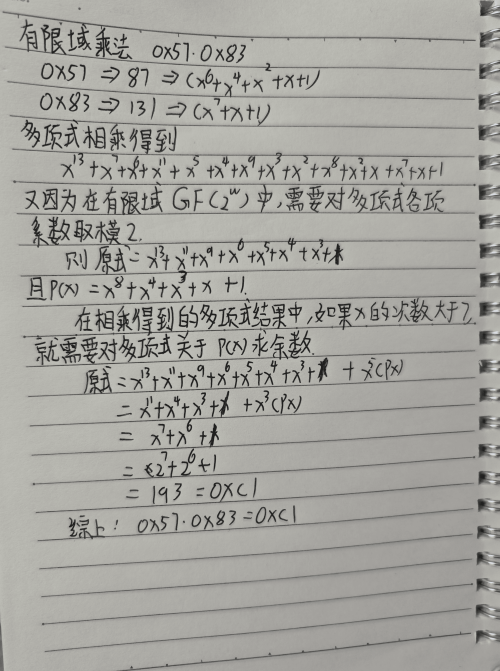 有限域乘法 0x57·0x83
0x57 ⇒ 87 ⇒ (x⁶+x⁴+x²+x+1)
0x83 ⇒ 131 ⇒ (x⁷+x+1)
多项式相乘得到
x¹³+x⁷+x⁶+x¹¹+x⁵+x⁴+x⁹+x³+x²+x⁸+x²+x+x⁷+x+1
又因为在有限域 GF(2ʷ) 中,需要对多项式各项
系数取模2.
则 原式=x¹³+x¹¹+x⁹+x⁶+x⁵+x⁴+x³+1
且P(x)=x⁸+x⁴+x³+x+1.
在相乘得到的多项式结果中,如果x的次数大于7,
就需要对多项式关于 P(x) 求余数.
原式=x¹³+x¹¹+x⁹+x⁶+x⁵+x⁴+x³+1 + x⁵(Px)
=x¹¹+x⁴+x³+1 +x³(Px)
=x⁷+x⁶+1
=2⁷+2⁶+1
=193 =0xC1
综上: 0x57·0x83=0xC1